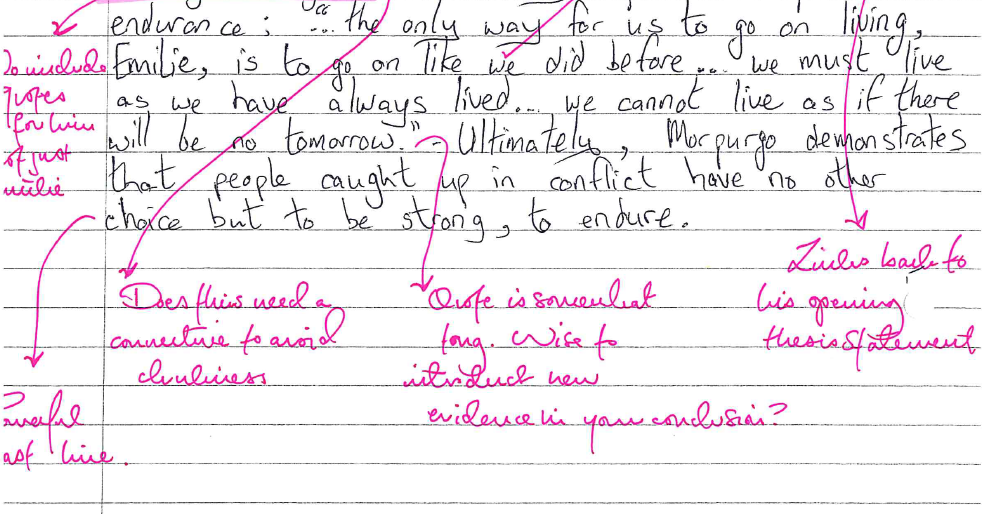 endurance; "... the only way for us to go on living,
Emilie, is to go on like we did before... we must live
as we have always lived... we cannot live as if there
will be no tomorrow." - Ultimately, Morpurgo demonstrates
that people caught up in conflict have no other
choice but to be strong, to endure.
to include
quotes
for him
of just
Does this need a
connective to avoid
Quote is somewhat
long. Wise to
new
evidence in your conclusion?
Links back to
his opening
thesis statement
line.